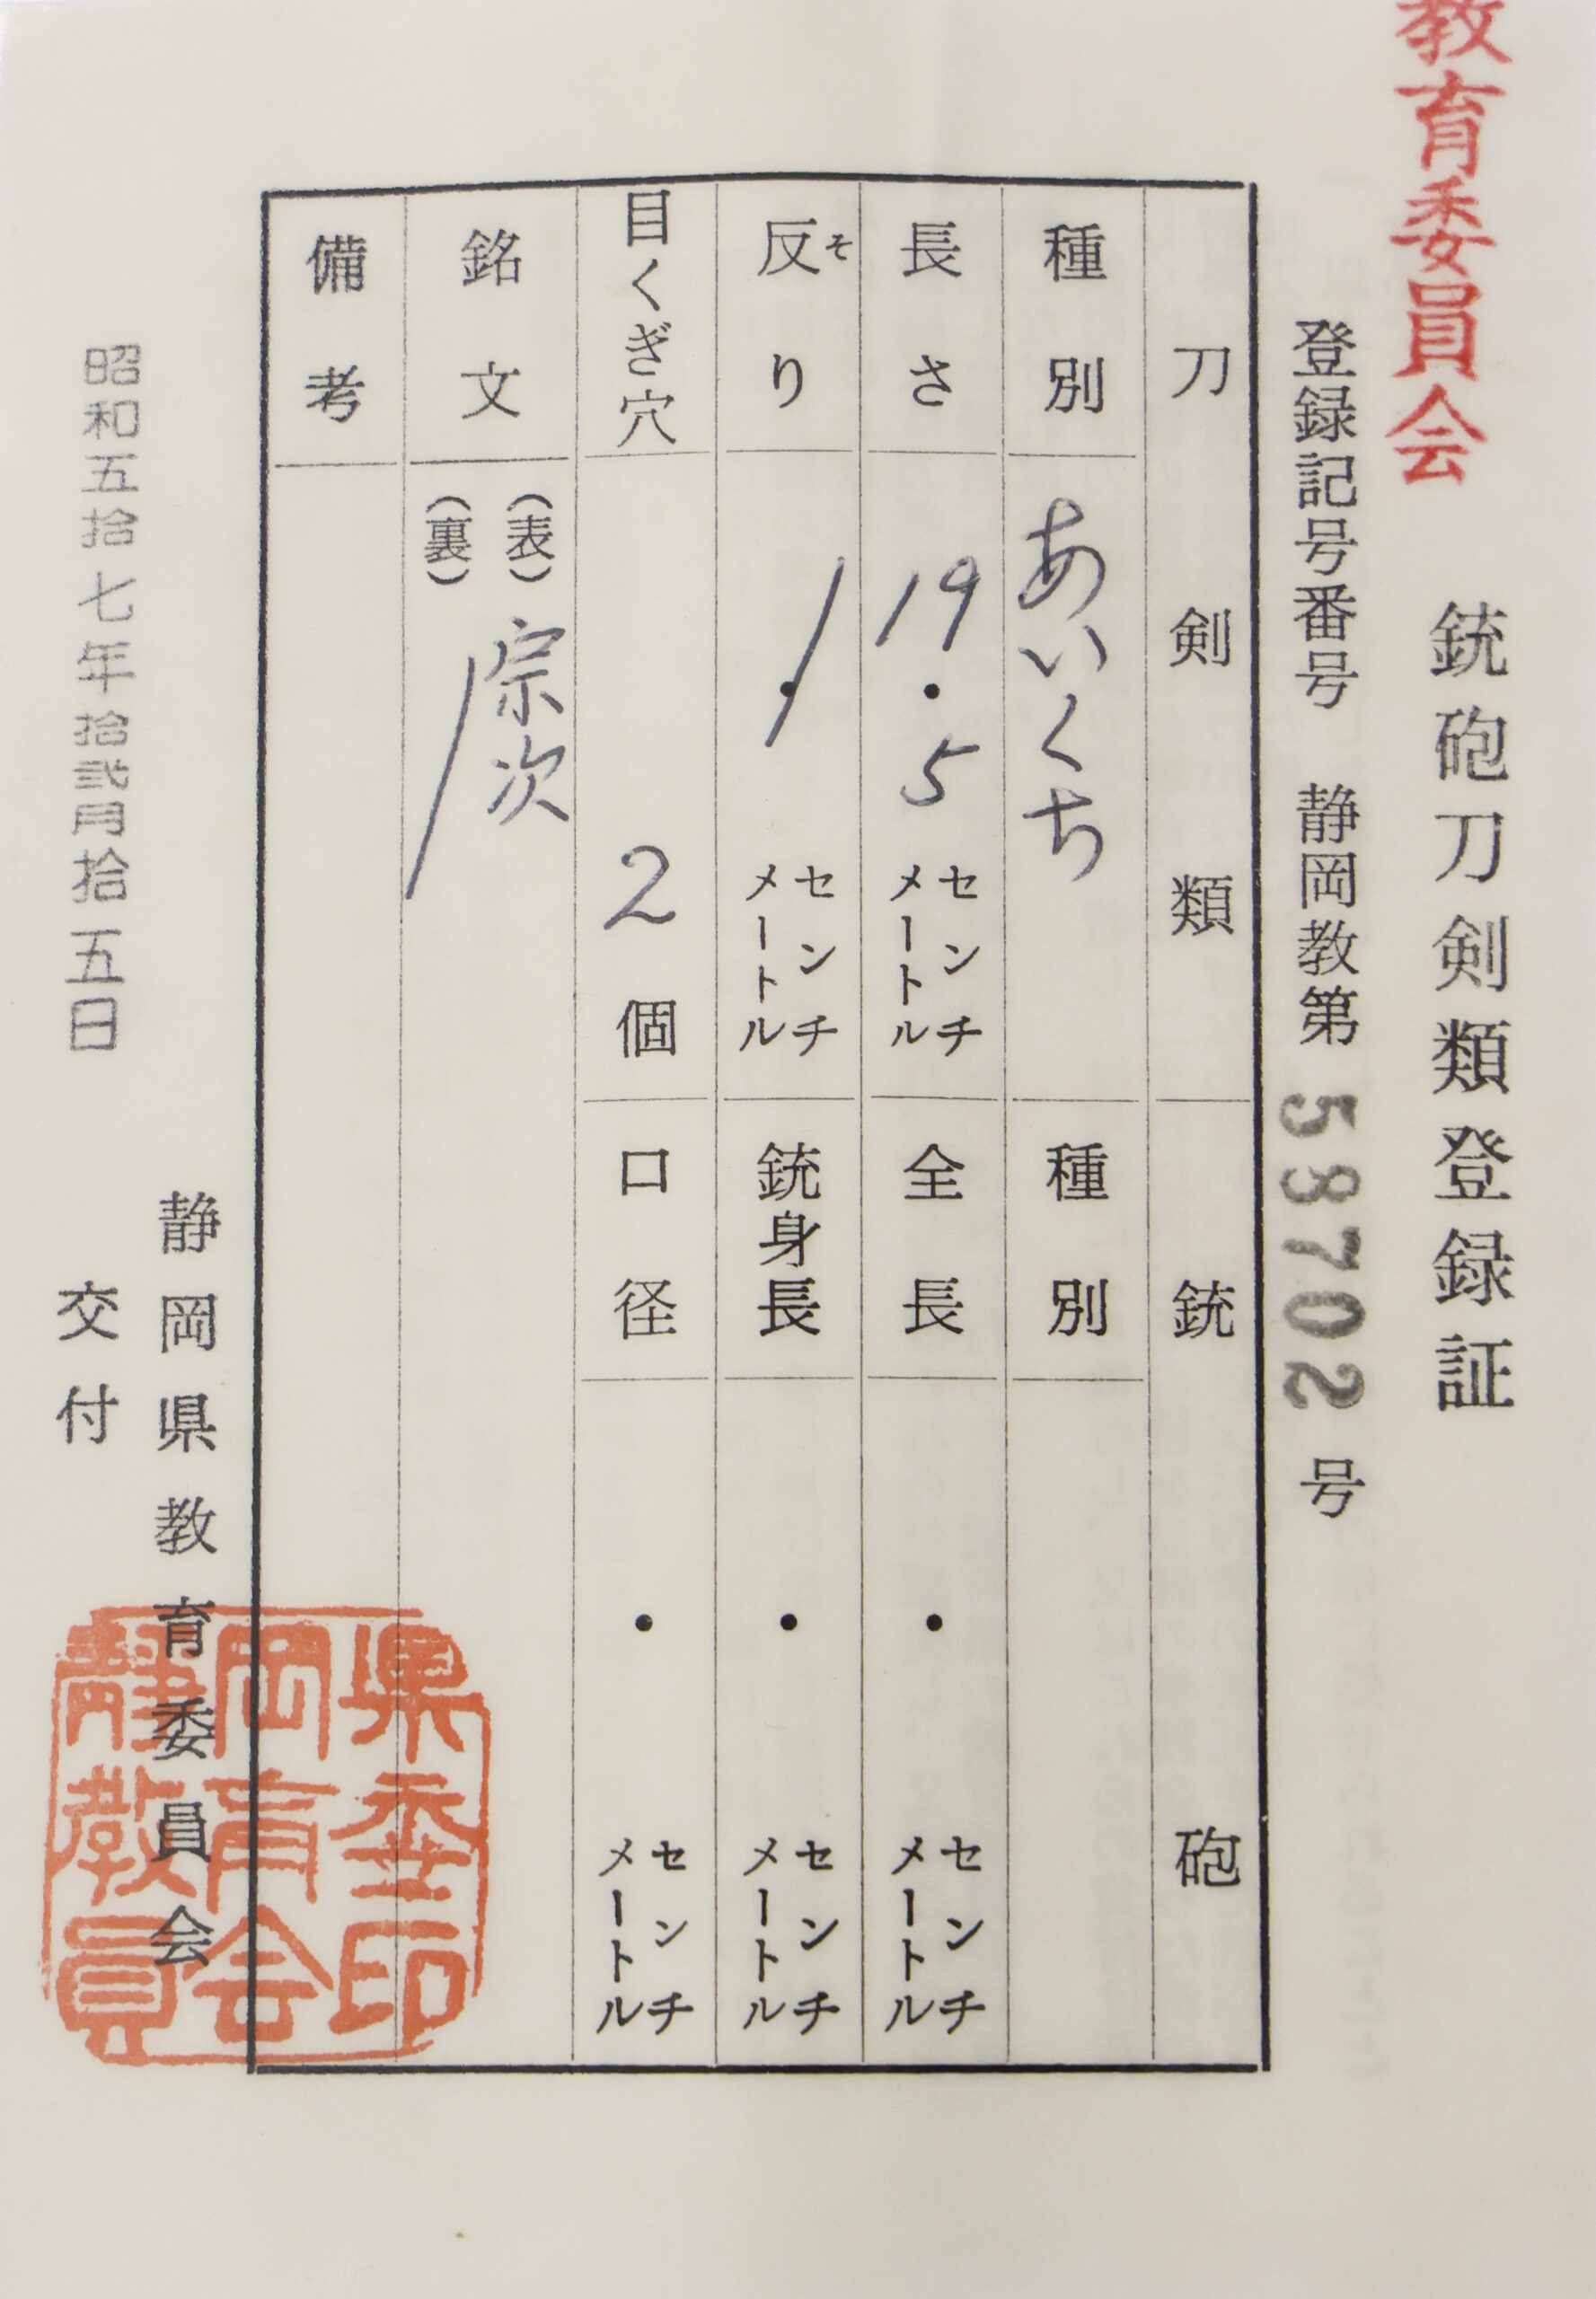 教育委員会
銃砲刀剣類登録証
登録記号番号 静岡教第 58702 号
刀剣類
銃砲
種別 あいくち
種別
長さ 19.5 センチメートル
全長 ・ センチメートル
反り そ ・ センチメートル
銃身長 ・ センチメートル
目くぎ穴 2 個
口径 ・ センチメートル
銘文
(表) 宗次
(裏)
備考
静岡県教育委員会
昭和五拾七年拾弐月拾五日 交付
静岡県教育委員会印